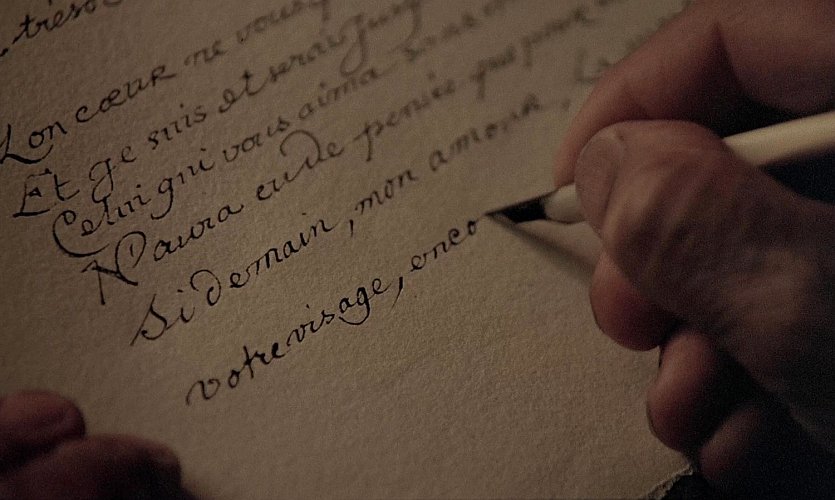 trésor
Lon cœur ne vous
Et je suis et serai jusq
Celui qui vous aima sans
N'aura eu de pensée que pour
Si demain, mon amour, la
votre visage, enco